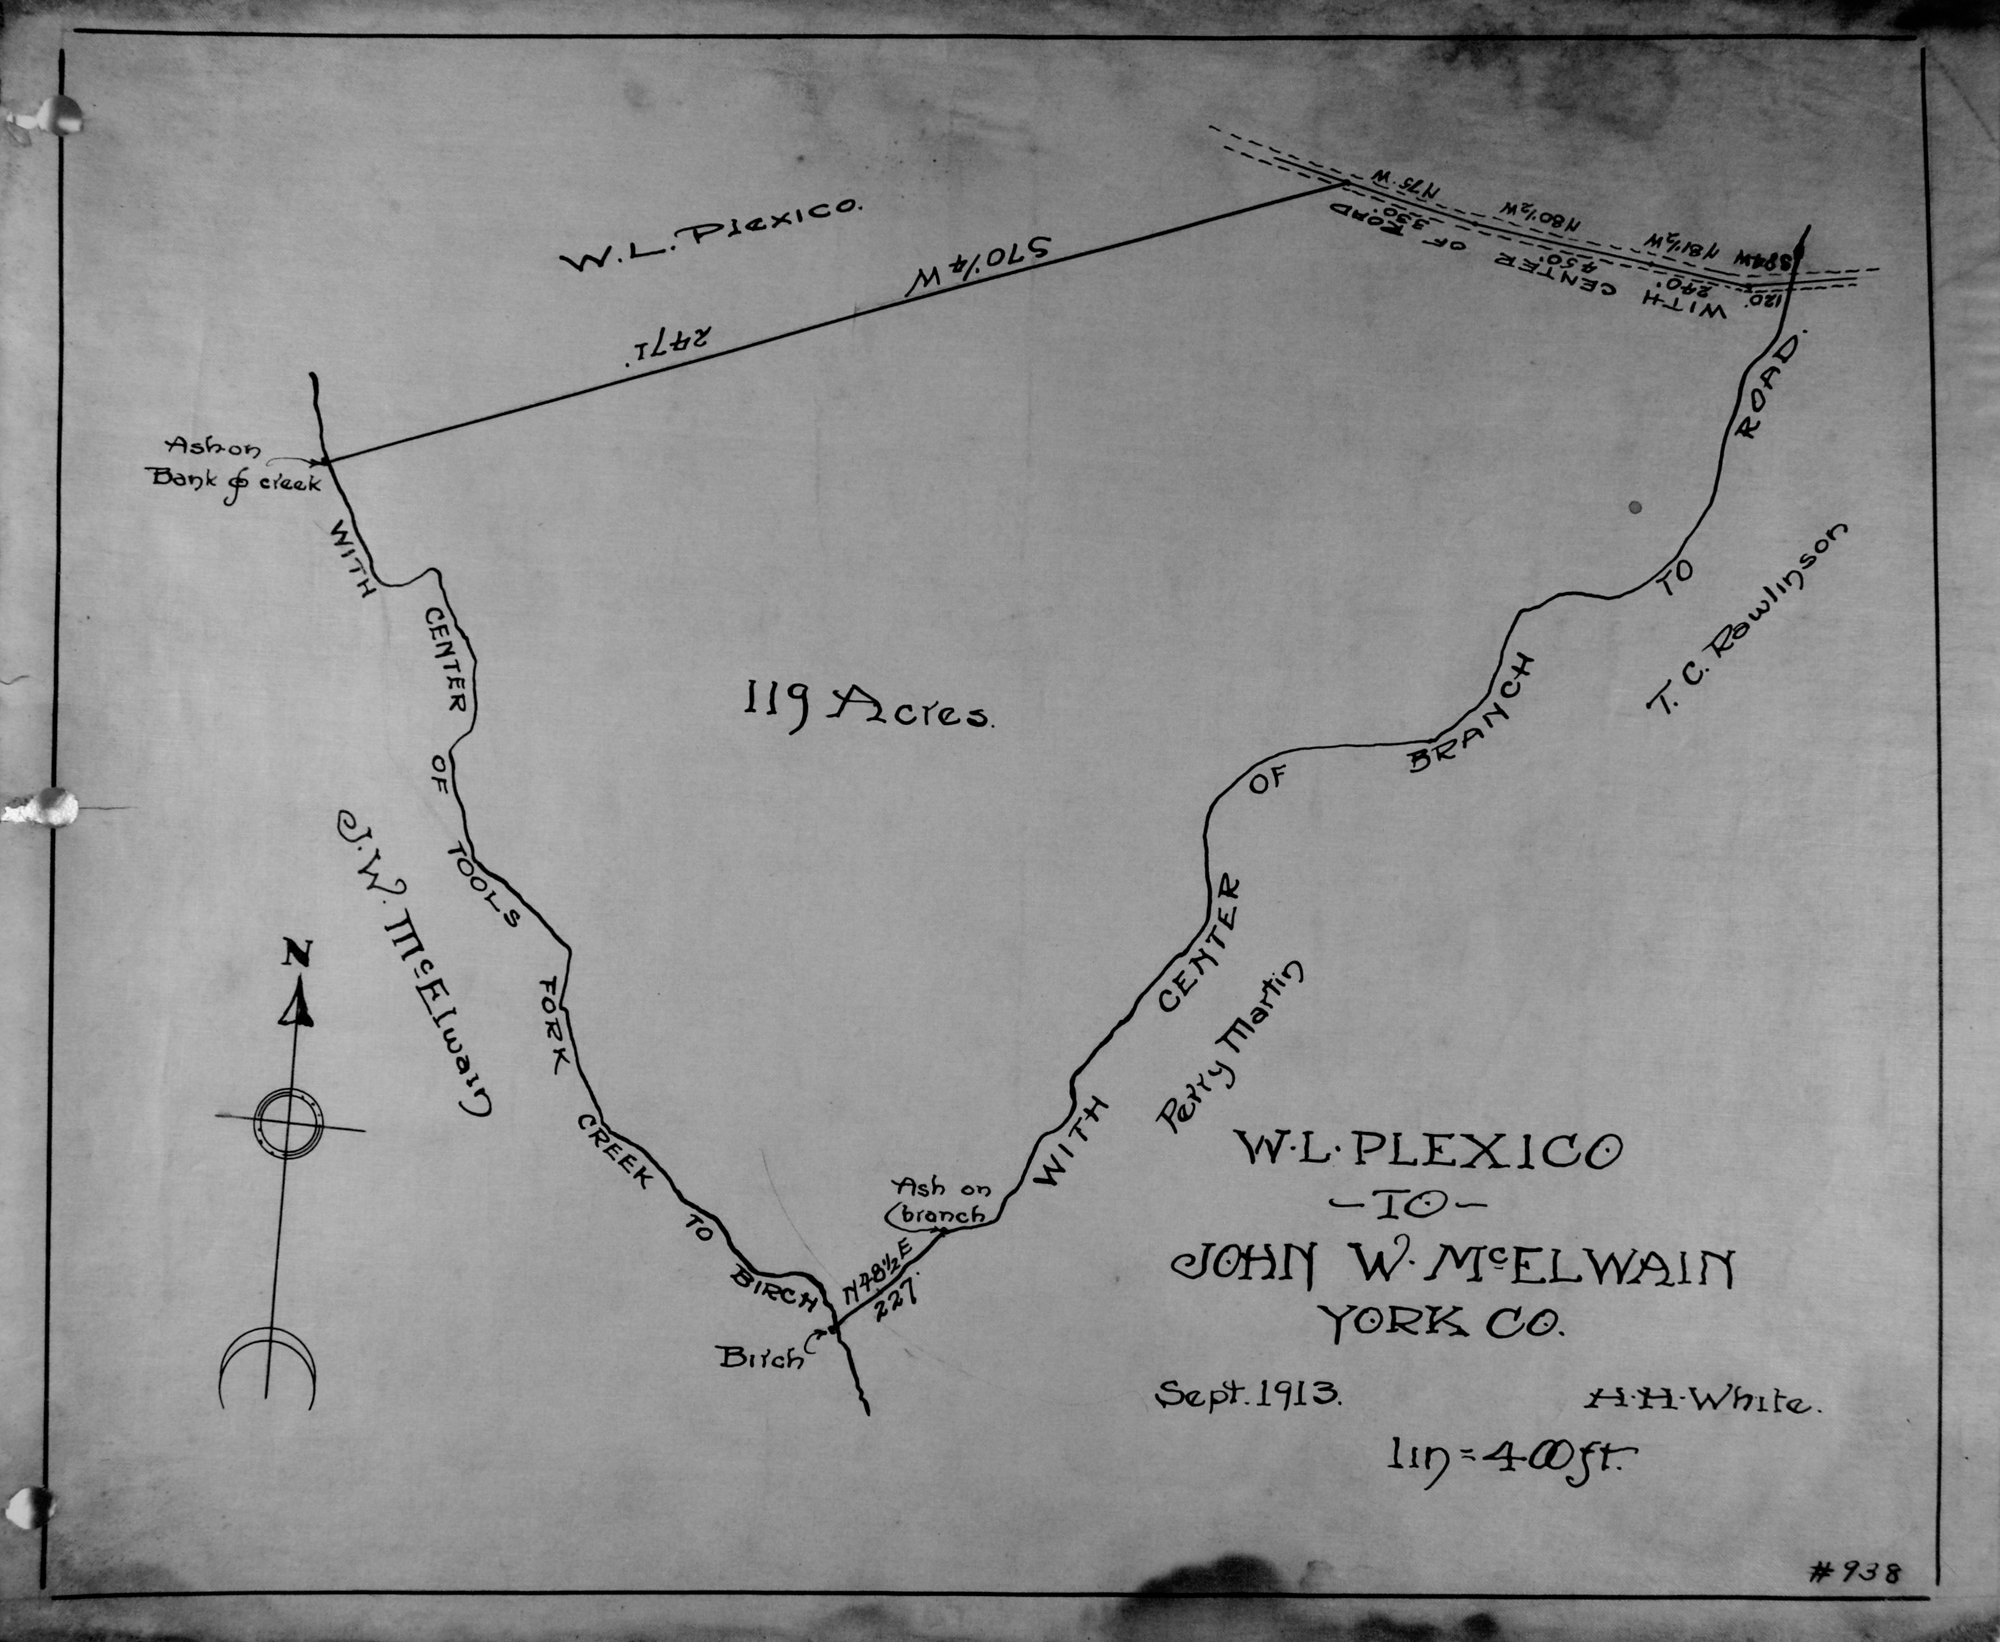 W. L. Plexico.
S70¼W
2471.
N75 W
330'
N80½W
450'
N81½W
240'
S84W
120'
WITH CENTER OF ROAD
Ash on
Bank of creek
WITH CENTER OF TOOLS FORK CREEK TO BIRCH
J. W. McElwain
119 Acres.
WITH CENTER OF BRANCH TO ROAD.
T. C. Rawlinson
Perry Martin
N
Ash on
branch
N48½E
227'
Birch
W. L. PLEXICO
-TO-
JOHN W. McELWAIN
YORK CO.
Sept. 1913.
H. H. White.
1in = 400ft.
#938